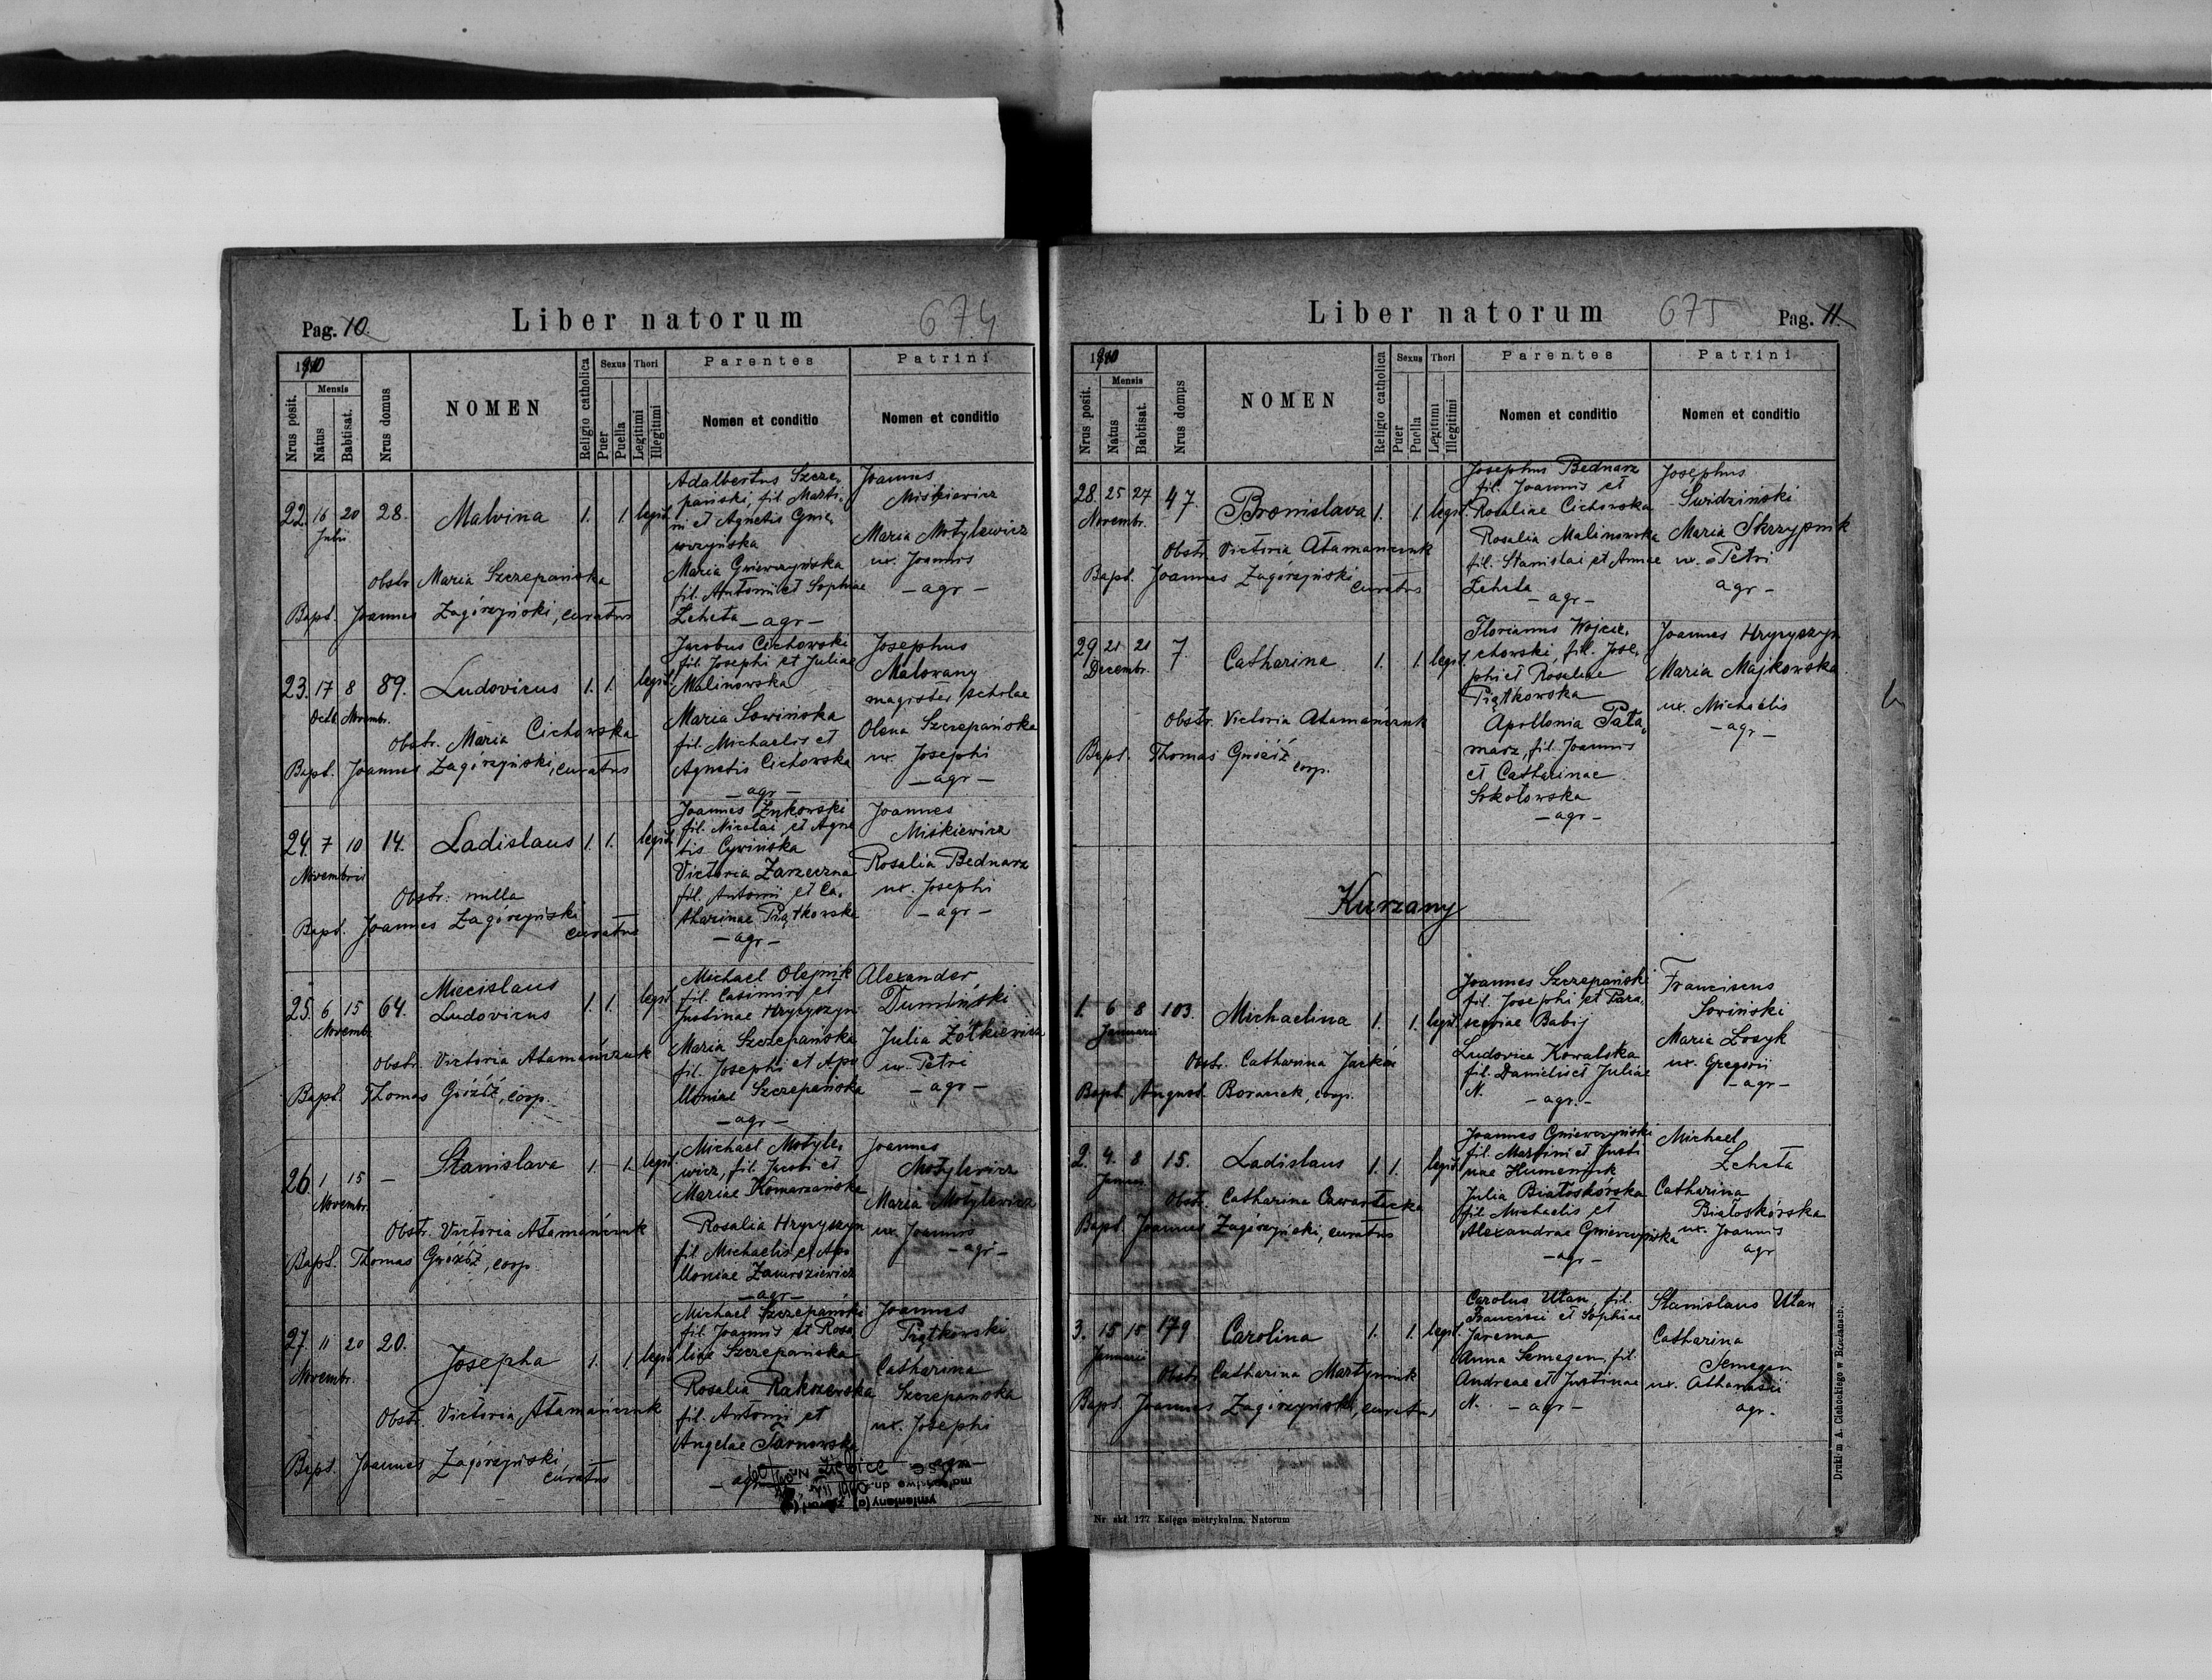 Pag. 10.
Liber natorum
674
1910
Nrus posit.
Mensis
Natus
Babtisat.
Nrus domus
NOMEN
Religio catholica
Sexus
Puer
Puella
Thori
Legitimi
Illegitimi
Parentes
Nomen et conditio
Patrini
Nomen et conditio
22. 16 20 28. Malvina 1. 1. legit.
Julii
Obstr. Maria Szczepańska
Bapt. Joannes Zagórzyński, curatus
Adalbertus Szcze-
pański, fil. Marti-
ni et Agnetis Gnie-
wczyńska
Maria Gniewczyńska
fil. Antonii et Sophiae
Zcheta - agr -
Joannes
Miśkiewicz
Maria Motylewicz
ux. Joannis
- agr -
23. 17 8 89. Ludovicus 1. 1. legit.
Octb. Novembr.
Obstr. Maria Cichowska
Bapt. Joannes Zagórzyński, curatus
Jacobus Cichowski
fil. Josephi et Juliae
Malinowska
Maria Sowińska
fil. Michaelis et
Agnetis Cichowska
- agr -
Josephus
Malowany
magister scholae
Olena Szczepańska
ux. Josephi
- agr -
24. 7 10 14. Ladislaus 1. 1. legit.
Novembris
Obstr. nulla
Bapt. Joannes Zagórzyński
curatus
Joannes Żukowski
fil. Nicolai et Agne
tis Cywińska
Victoria Zarzeczna
fil. Antonii et Ca-
tharinae Piątkowska
- agr -
Joannes
Miśkiewicz
Rosalia Bednarz
ux. Josephi
- agr -
25. 6 15 64. Miecislaus
Ludovicus 1. 1. legit.
Novembr.
Obstr. Victoria Atamańczuk
Bapt. Thomas Gróźdź, coop.
Michael Olejnik
fil. Casimiri et
Justinae Hryryszyn
Maria Szczepańska
fil. Josephi et Apo
lloniae Szczepańska
- agr -
Alexander
Dumiński
Julia Żółkiewicz
ux. Petri
- agr -
26. 1 15 - Stanislava 1. 1. legit.
Novembr.
Obstr. Victoria Atamańczuk
Bapt. Thomas Gróźdź, coop.
Michael Motyle-
wicz, fil. Jacobi et
Mariae Komarzańska
Rosalia Hryryszyn
fil. Michaelis et Apo
lloniae Zawroziewicz
- agr -
Joannes
Motylewicz
Maria Motylewicz
ux. Joannis
- agr -
27. 11 20 20. Josepha 1. 1. legit.
Novembr.
Obstr. Victoria Atamańczuk
Bapt. Joannes Zagórzyński
curatus
Michael Szczepański
fil. Joannis et Rosa
liae Szczepańska
Rosalia Rakszewska
fil. Antonii et
Angelae Tarnowska
- agr -
Joannes
Piątkowski
Catharina
Szczepańska
ux. Josephi
Liber natorum
675
Pag. 11.
1910
Nrus posit.
Mensis
Natus
Babtisat.
Nrus domus
NOMEN
Religio catholica
Sexus
Puer
Puella
Thori
Legitimi
Illegitimi
Parentes
Nomen et conditio
Patrini
Nomen et conditio
28. 25 27 47. Bronislava 1. 1. legit.
Novembr.
Obstr. Victoria Atamańczuk
Bapt. Joannes Zagórzyński
curatus
Josephus Bednarz
fil. Joannis et
Rosaliae Cichowska
Rosalia Malinowska
fil. Stanislai et Annae
Zcheta
- agr -
Josephus
Swidziński
Maria Skrzypnik
ux. Petri
agr -
29. 21 21 7. Catharina 1. 1. legit.
Decembr.
Obstr. Victoria Atamańczuk
Bapt. Thomas Gróźdź
coop.
Florianus Wojcie-
chowski fil. Jose-
phi et Rosaliae
Piątkowska
Apollonia Pała-
marz, fil. Joannis
et Catharinae
Sokołowska
- agr -
Joannes Hryryszyn
Maria Majkowska
ux. Michaelis
- agr -
Kurzany
1. 6 8 103. Michaelina 1. 1. legit.
Januarii
Obstr. Catharina Jacków
Bapt. August. Boranek, coop.
Joannes Szczepański
fil. Josephi et Para-
sceviae Babij
Ludovica Kowalska
fil. Danielis et Juliae
N. - agr. -
Franciscus
Sowiński
Maria Łosyk
ux. Gregorii
- agr -
2. 4. 8 15. Ladislaus 1. 1. legit.
Januar.
Obstr. Catharina Czwartacka
Bapt. Joannes Zagórzyński, curatus
Joannes Gniewczyński
fil. Martini et Justi
nae Humeniuk
Julia Białoskórska
fil. Michaelis et
Alexandrae Gniewczyńska
- agr -
Michael
Zcheta
Catharina
Białoskórska
ux. Joannis
agr
3. 15 15 179 Carolina 1. 1. legit.
Januarii
Obstr. Catharina Martyniuk
Bapt. Joannes Zagórzyński, curatus
Carolus Ułan, fil.
Francisci et Sophiae
Jarema
Anna Semegen, fil.
Andreae et Justinae
N. - agr -
Stanislaus Ułan
Catharina
Semegen
ux. Athanasii
agr.
Nr. skł. 177 Księga metrykalna. Natorum
Drukiem A. Cichockiego w Brzeżanach.